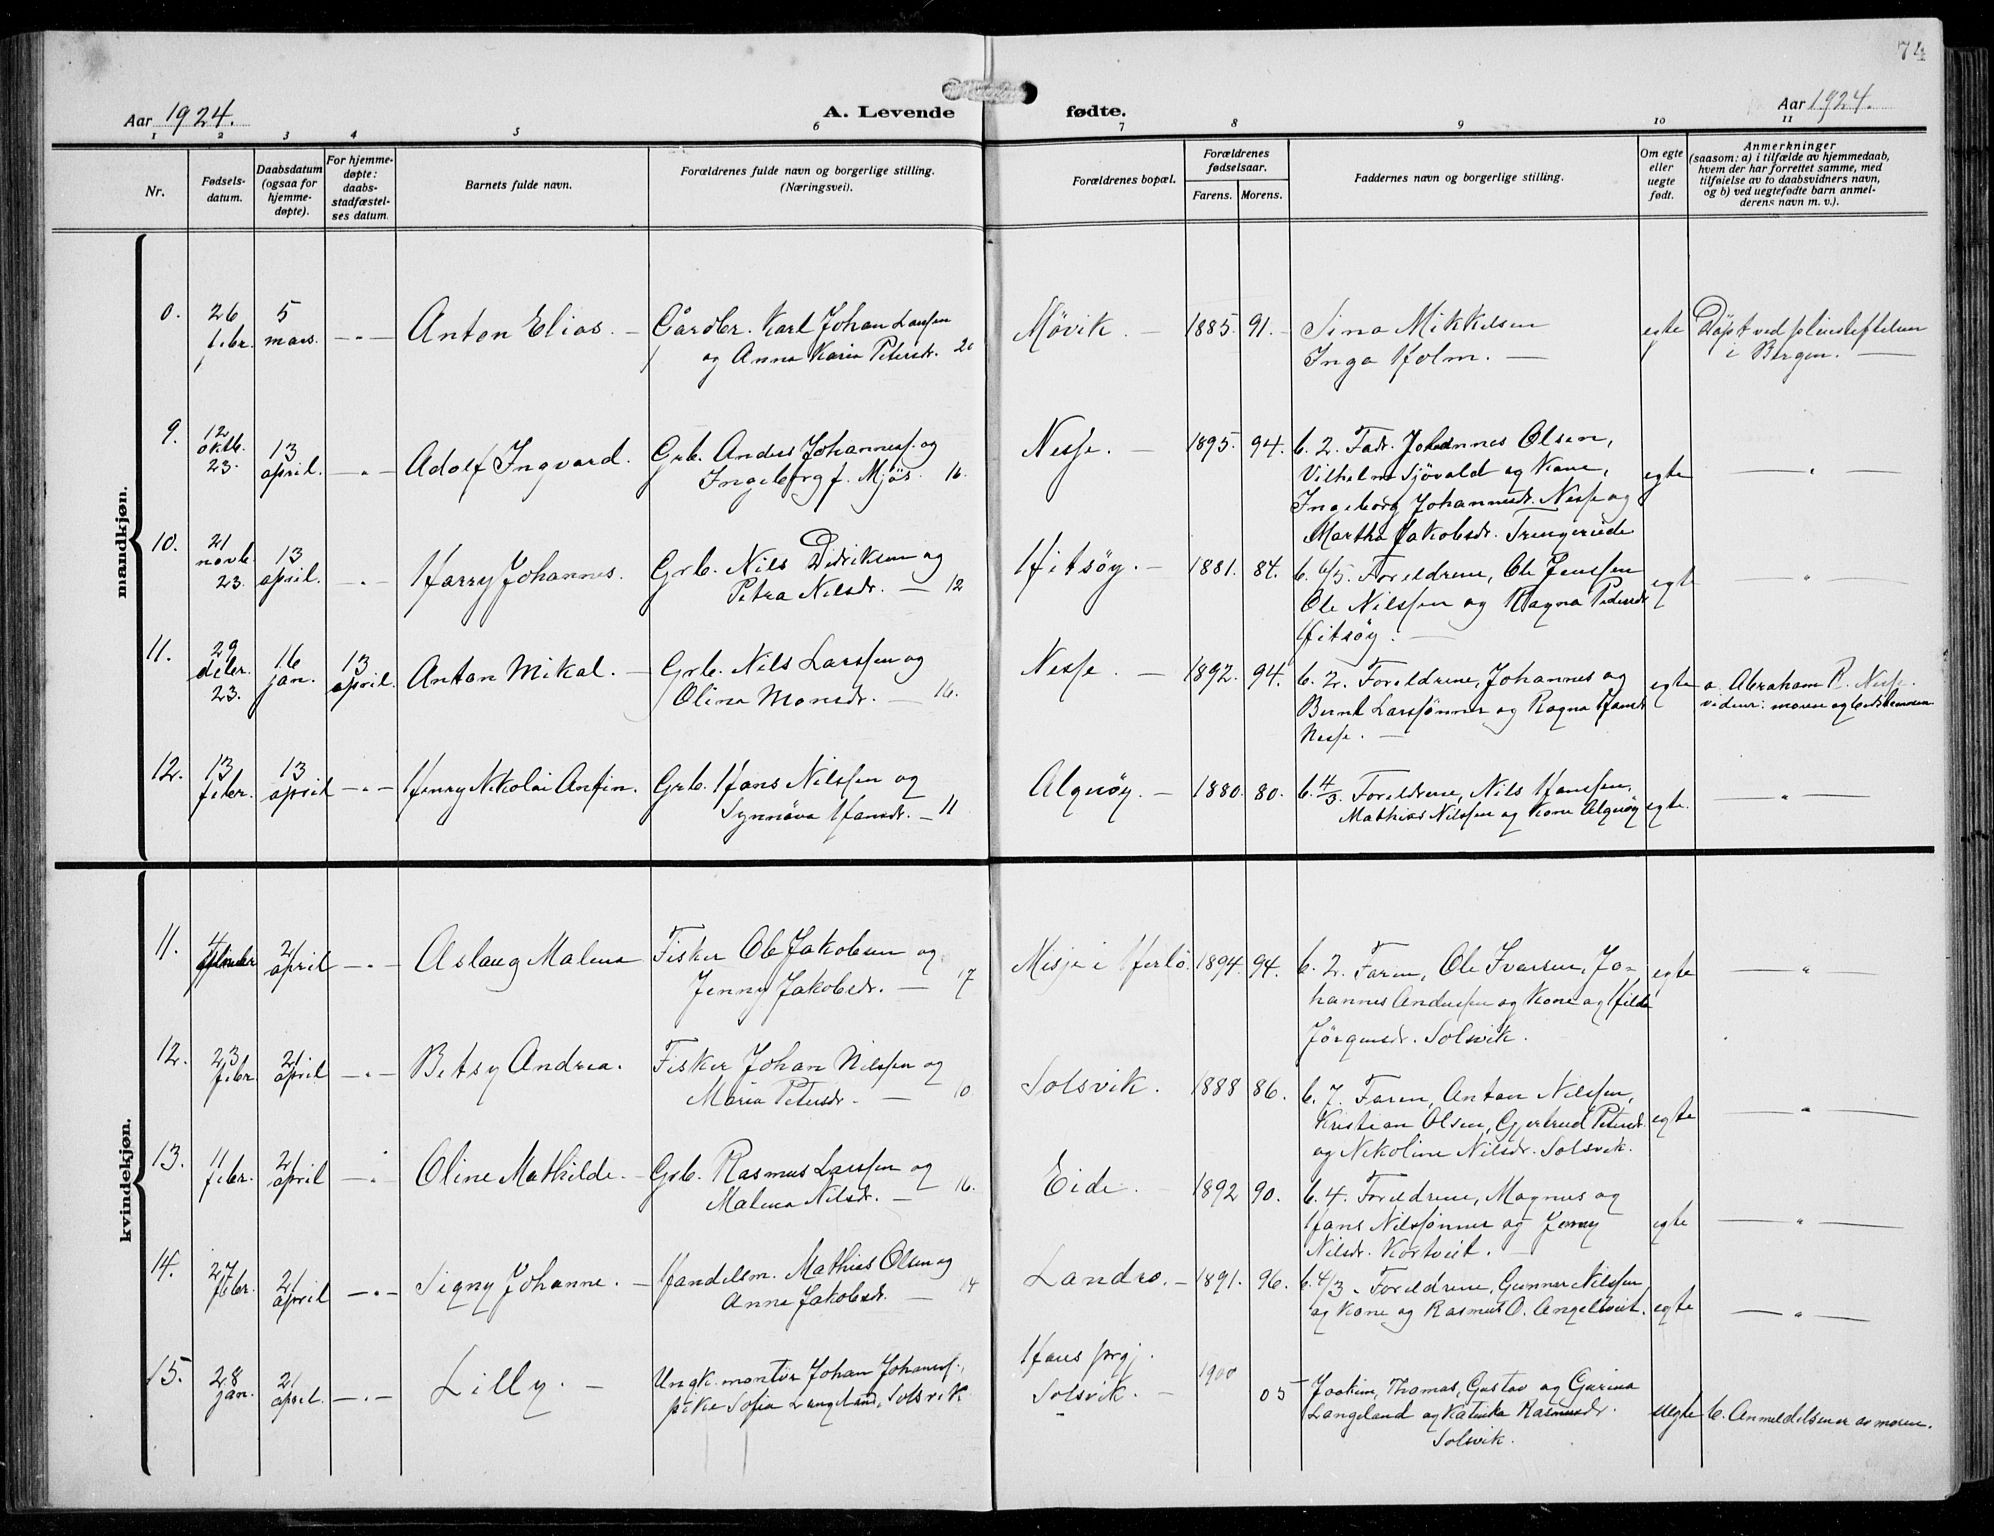 74
Aar 1924.
A. Levende fødte.
Aar 1924.
1 2 3 4 5 6 7 8 9 10 11
Nr.
Fødsels-
datum.
Daabsdatum
(ogsaa for
hjemme-
døpte).
For hjemme-
døpte:
daabs-
stadfæstel-
ses datum.
Barnets fulde navn.
Forældrenes fulde navn og borgerlige stilling.
(Næringsvei).
Forældrenes bopæl.
Forældrenes
fødselsaar.
Farens. Morens.
Faddernes navn og borgerlige stilling.
Om egte
eller
uegte
født.
Anmerkninger
(saasom: a) i tilfælde av hjemmedaab,
hvem der har forrettet samme, med
tilføielse av to daabsvidners navn,
og b) ved uegtefødte barn anmel-
derens navn m. v.).
mandkjøn.
0. 26 febr. 5 mars. — " — Anton Elias. — Gårdbr. Karl Johan Larsen
og Anna Karia Petersdr. 20
Møvik. — 1885. 91. Sina Mikkelsen
Inga Holm. —
egte Døpt ved
i Bergen. —
9. 12 oktb. 23. 13 april. — " — Adolf Ingvard. Grb. Anders Johannesf. og
Ingeborg f. Mjøs. 16.
Nesse. — 1895. 94. b. 2. Fadr. Johannes Olsen,
Vilhelm Sjövald og Kone,
Ingeborg Johannesdr. Nesse og
Martha Jakobsdr.
egte — " —
10. 21 novb. 23. 13 april. — " — Harry Johannes. Grb. Nils Didriksen og
Petra Nilsdr. — 12
Hitsöy. — 1881. 84. b. 6/5. Foreldrene, Ole Jenssen
Ole Nilssen og Ragna Pedersdr
Hitsöy. —
egte — " —
11. 29 deber. 23. 16 jan. 13 april. Anton Mikal. — Grb. Nils Larssen og
Olina Monsdr. — 16.
Nesse. — 1892. 94. b. 2. Foreldrene, Johannes og
Bernt Larssønner og Ragna Hansdr
Nesse. —
egte a. Abraham R. Nesse.
vidner: moren og bedstemoren
12. 13 feber. 13 april — " — Henry Nikolai Anfin. Grb. Hans Nilssen og
Synnöva Hansdr. — 11
Algröy. — 1880. 80. b. 4/3. Foreldrene, Nils Hanssen,
Mathias Nilssen og Kone Algröy
egte. — " —
kvindekjøn.
11. 4 21 april — " — Aslaug Malena Fisker Ole Jakobsen og
Jenny Jakobsdr. — 17
Misje i Herlö. 1894. 94. b. 2. Faren, Ole Ivarsen, Jo-
hannes Andersen og Kone og Hilda
Jörgensdr. Solsvik.
egte — " —
12. 23 febr. 21 april — " — Betsy Andrea. Fisker Johan Nilssen og
Maria Petersdr. — 10
Solsvik. 1888 86. b. 7. Faren, Anton Nilssen,
Kristian Olsen, Gjertrud Petersdr.
og Nikoline Nilsdr. Solsvik.
egte — " —
13. 11 febr. 21 april — " — Oline Mathilde. — Grb. Rasmus Larssen og
Malena Nilsdr. — 16.
Eide. — 1892 90. b. 4. Foreldrene, Magnus og
Hans Nilssønner og Jenny
Nilsdr. Kortveit. —
egte — " —
14. 27 febr. 21 april — " — Signy Johanne. — Handelsm. Mathias Olsen og
Anna Jakobsdr. — 14
Landro. — 1891. 96. b. 4/3. Foreldrene, Gunnar Nilssen
og Kone og Rasmus O. Angeltveit.
egte — " —
15. 28 jan. 21 april. — " — Lilly. — Ungk. montör Johan Johanesf.,
pike Sofia Langeland, Solsvik
Hans
Solsvik. — 1900 05 Joakim, Thomas, Gustav og Gurina
Langeland og Katinka Rasmusdr.
Solsvik.
uegte b. Anmeldelsen er av moren.